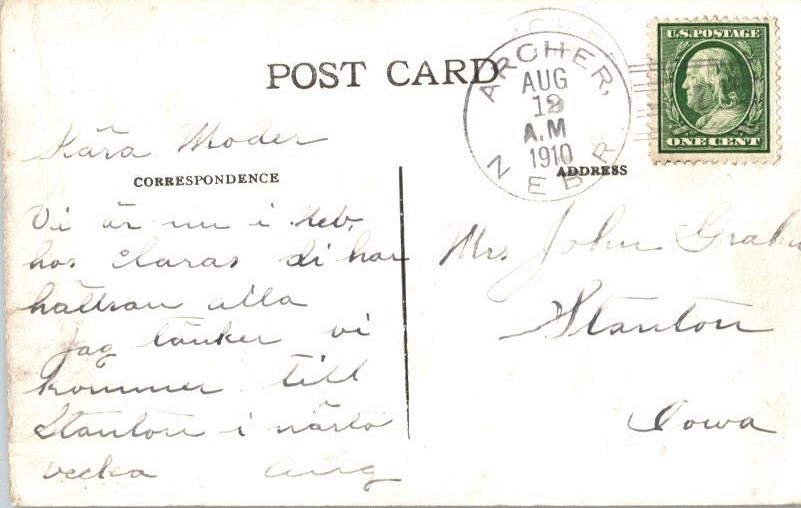 POST CARD
ARCHER,
NEBR
AUG
12
A.M
1910
U.S. POSTAGE
ONE CENT
Kära Moder
CORRESPONDENCE
ADDRESS
Vi är nu i Neb,
hos Claras di har
hälsan alla
Jag tänker vi
kommer till
Stanton i närsta
vecka Aug
Mrs John
Stanton
Iowa